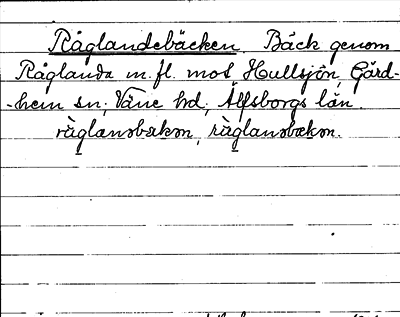 Råglandebäcken. Bäck genom
Råglanda m.fl. mot Hullsjön, Gärd-
-hem sn; Väne hd; Älfsborgs län.